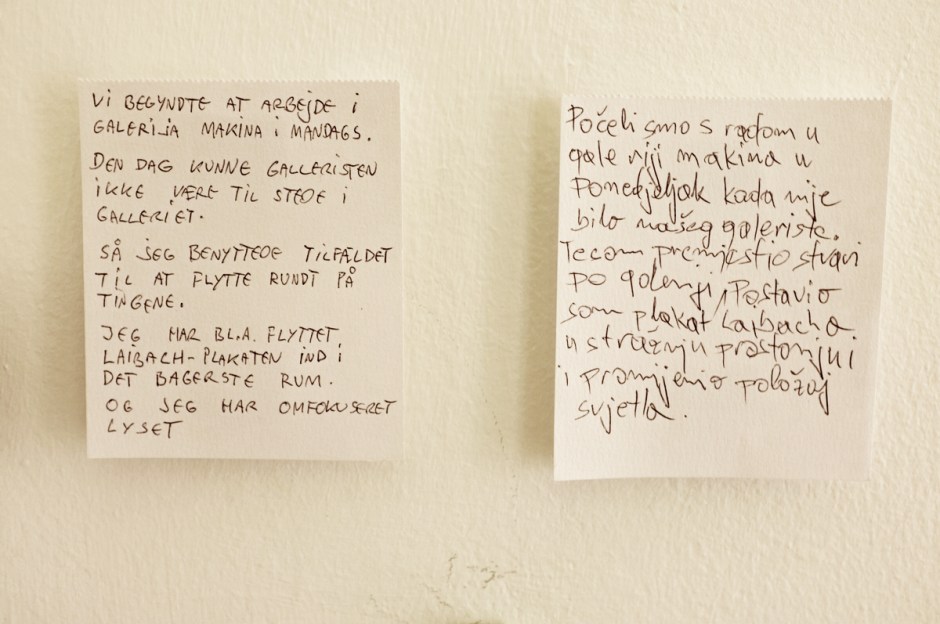 VI BEGYNDTE AT ARBEJDE I
GALERIJA MAKINA I MANDAGS.
DEN DAG KUNNE GALLERISTEN
IKKE VÆRE TIL STEDE I
GALLERIET.
SÅ JEG BENYTTEDE TILFÆLDET
TIL AT FLYTTE RUNDT PÅ
TINGENE.
JEG HAR BL.A. FLYTTET
LAIBACH-PLAKATEN IND I
DET BAGERSTE RUM.
OG JEG HAR OMFOKUSERET
LYSET
Počeli smo s radom u
galeriji makina u
Ponedjeljak kada nije
bilo našeg galeriste.
premjestio stvari
po galeriji, Postavio
sam plakat Lajbacha
u stražnju prostoriju i
i promijenio položaj
svjetla.